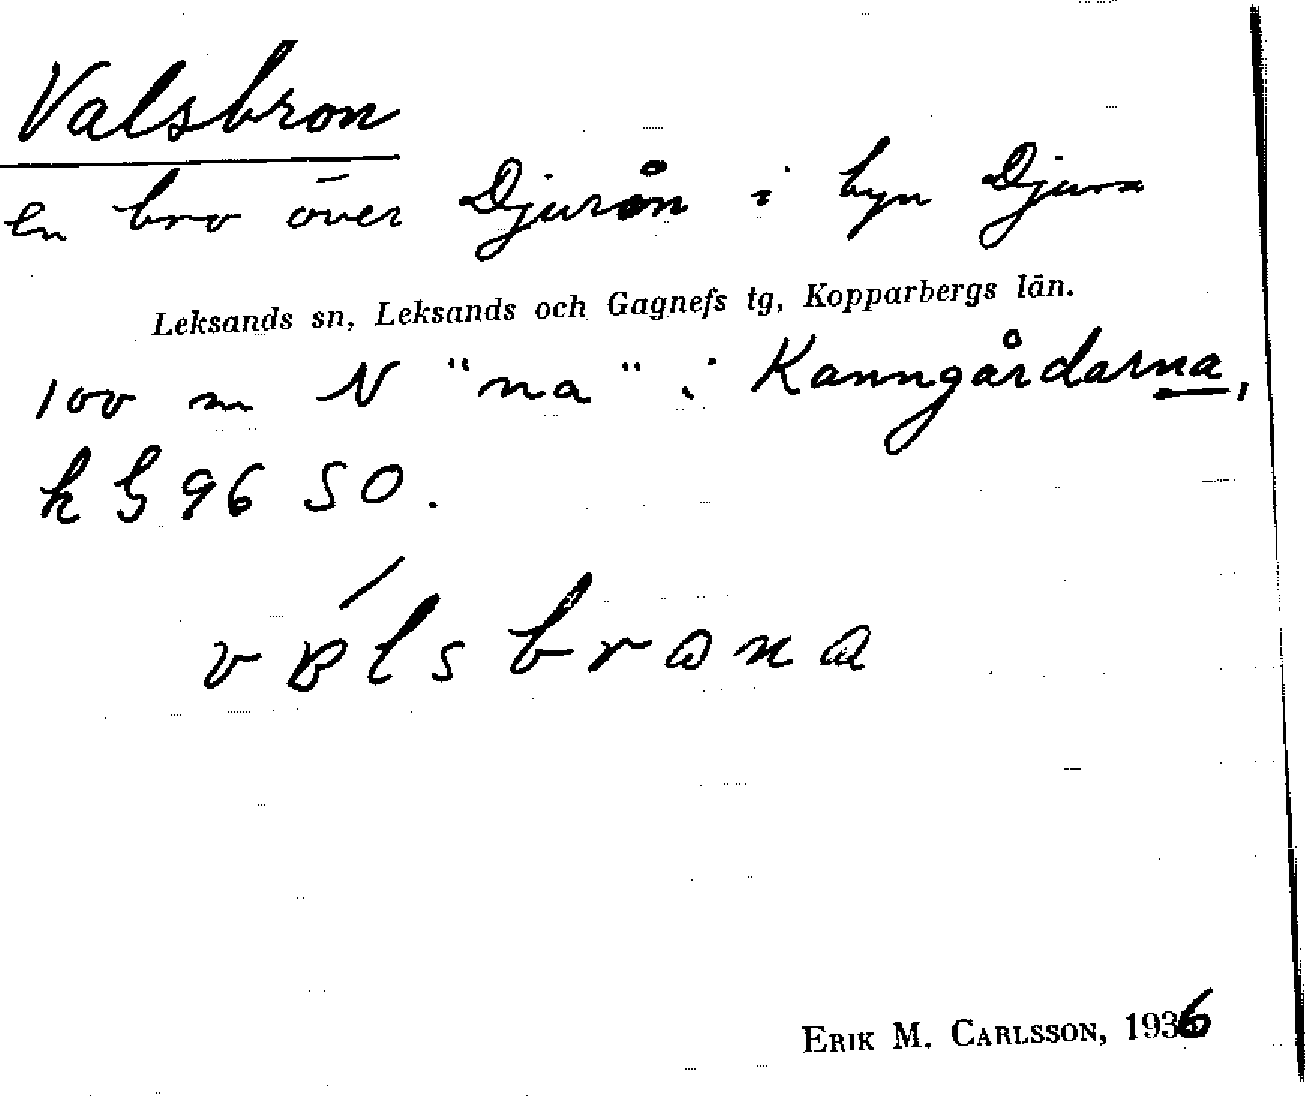 Valsbron
en bro över Djurån i byn Djura
Leksands sn, Leksands och Gagnefs tg, Kopparbergs län.
100 m N "na" i Kanngårdarna,
k G 96 SO.
Erik M. Carlsson, 1936